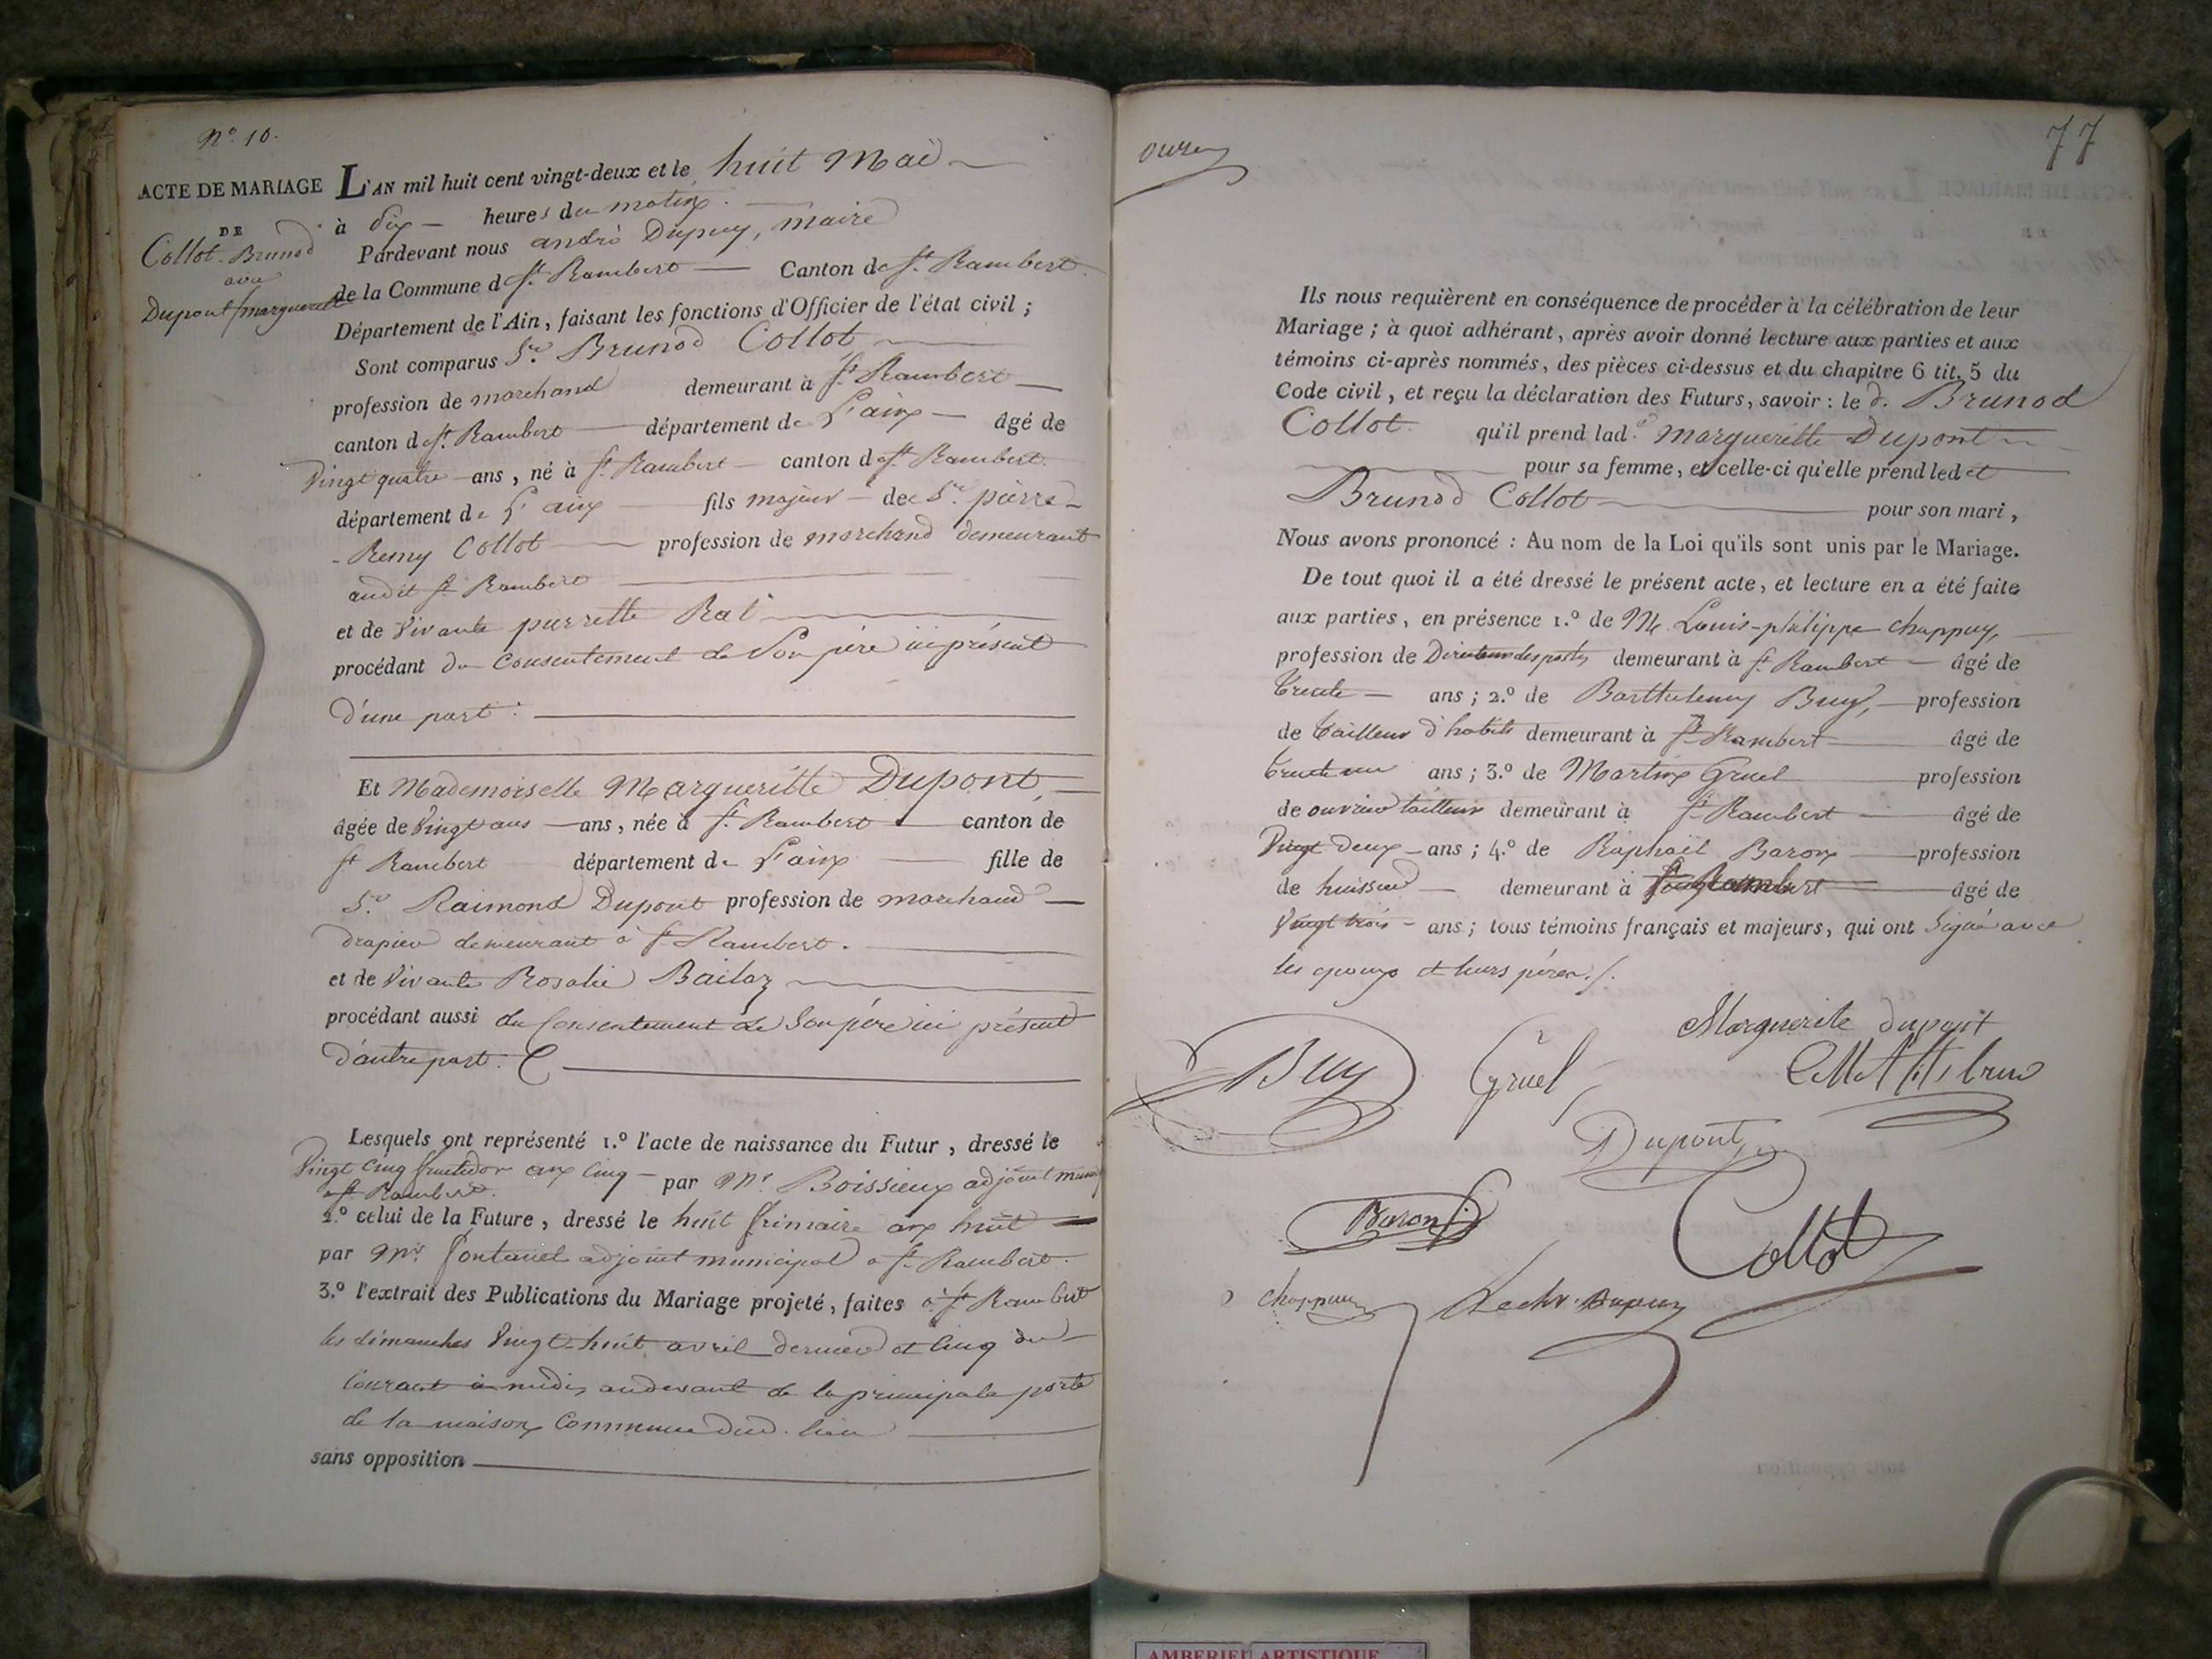 N.º 10.
ACTE DE MARIAGE
DE
Collot Brunod
avec
Dupont Marguerite
L'AN mil huit cent vingt-deux et le huit Mai
à dix heures du matin.
Pardevant nous andré Dupuy, maire
de la Commune d St. Rambert Canton de St. Rambert
Département de l'Ain, faisant les fonctions d'Officier de l'état civil ;
Sont comparus Sr. Brunod Collot,
profession de marchand demeurant à St. Rambert
canton d St. Rambert département de L'ain âgé de
Vingt quatre ans, né à St. Rambert canton d St. Rambert.
département de L'ain fils majeur de Sr. pierre-
-Remy Collot profession de marchand demeurant
audit St. Rambert
et de Vivante pierrette Ral
procédant du Consentement de Son père ici présent
d'une part.
Et Mademoiselle Margueritte Dupont,
âgée de Vingt ans ans, née à St. Rambert canton de
St Rambert département de L'ain fille de
Sr. Raimond Dupont profession de marchand
drapier demeurant à St Rambert.
et de Vivante Rosalie
procédant aussi du Consentement de Son père ici présent
d'autre part.
Lesquels ont représenté 1.º l'acte de naissance du Futur, dressé le
Vingt Cinq fructidor an Cinq par Mr. Boissieux adjoint
à St Rambert.
2.º celui de la Future, dressé le huit frimaire an huit
par Mr. fontanel adjoint municipal à St. Rambert.
3.º l'extrait des Publications du Mariage projeté, faites à St Rambert
les dimanches Vingt-huit avril dernier et Cinq du
Courant à midi, audevant de la principale porte
de la maison Commune dud. lieu
sans opposition
77
Ils nous requièrent en conséquence de procéder à la célébration de leur
Mariage ; à quoi adhérant, après avoir donné lecture aux parties et aux
témoins ci-après nommés, des pièces ci-dessus et du chapitre 6 tit. 5 du
Code civil, et reçu la déclaration des Futurs, savoir : le d. Brunod
Collot qu'il prend lad.e Margueritte Dupont
pour sa femme, et celle-ci qu'elle prend led et
Brunod Collot pour son mari,
Nous avons prononcé : Au nom de la Loi qu'ils sont unis par le Mariage.
De tout quoi il a été dressé le présent acte, et lecture en a été faite
aux parties, en présence 1.º de Me. Louis-philippe Chappuy,
profession de Directeur des postes demeurant à St Rambert âgé de
trente ans ; 2.º de Barthelemy Buy, profession
de tailleur d'habits demeurant à St Rambert âgé de
trente un ans ; 3.º de Martin Gruel profession
de ouvrier tailleur demeurant à St Rambert âgé de
Vingt deux ans ; 4.º de Raphaël Baron profession
de huissier demeurant à Saint Rambert âgé de
Vingt trois ans ; tous témoins français et majeurs, qui ont Signé avec
les époux et leurs pères.
Marguerite dupont
Buy Gruel
Dupont
Baron
Collot
Chappuy Dupuy
AMBERIEU ARTISTIQUE